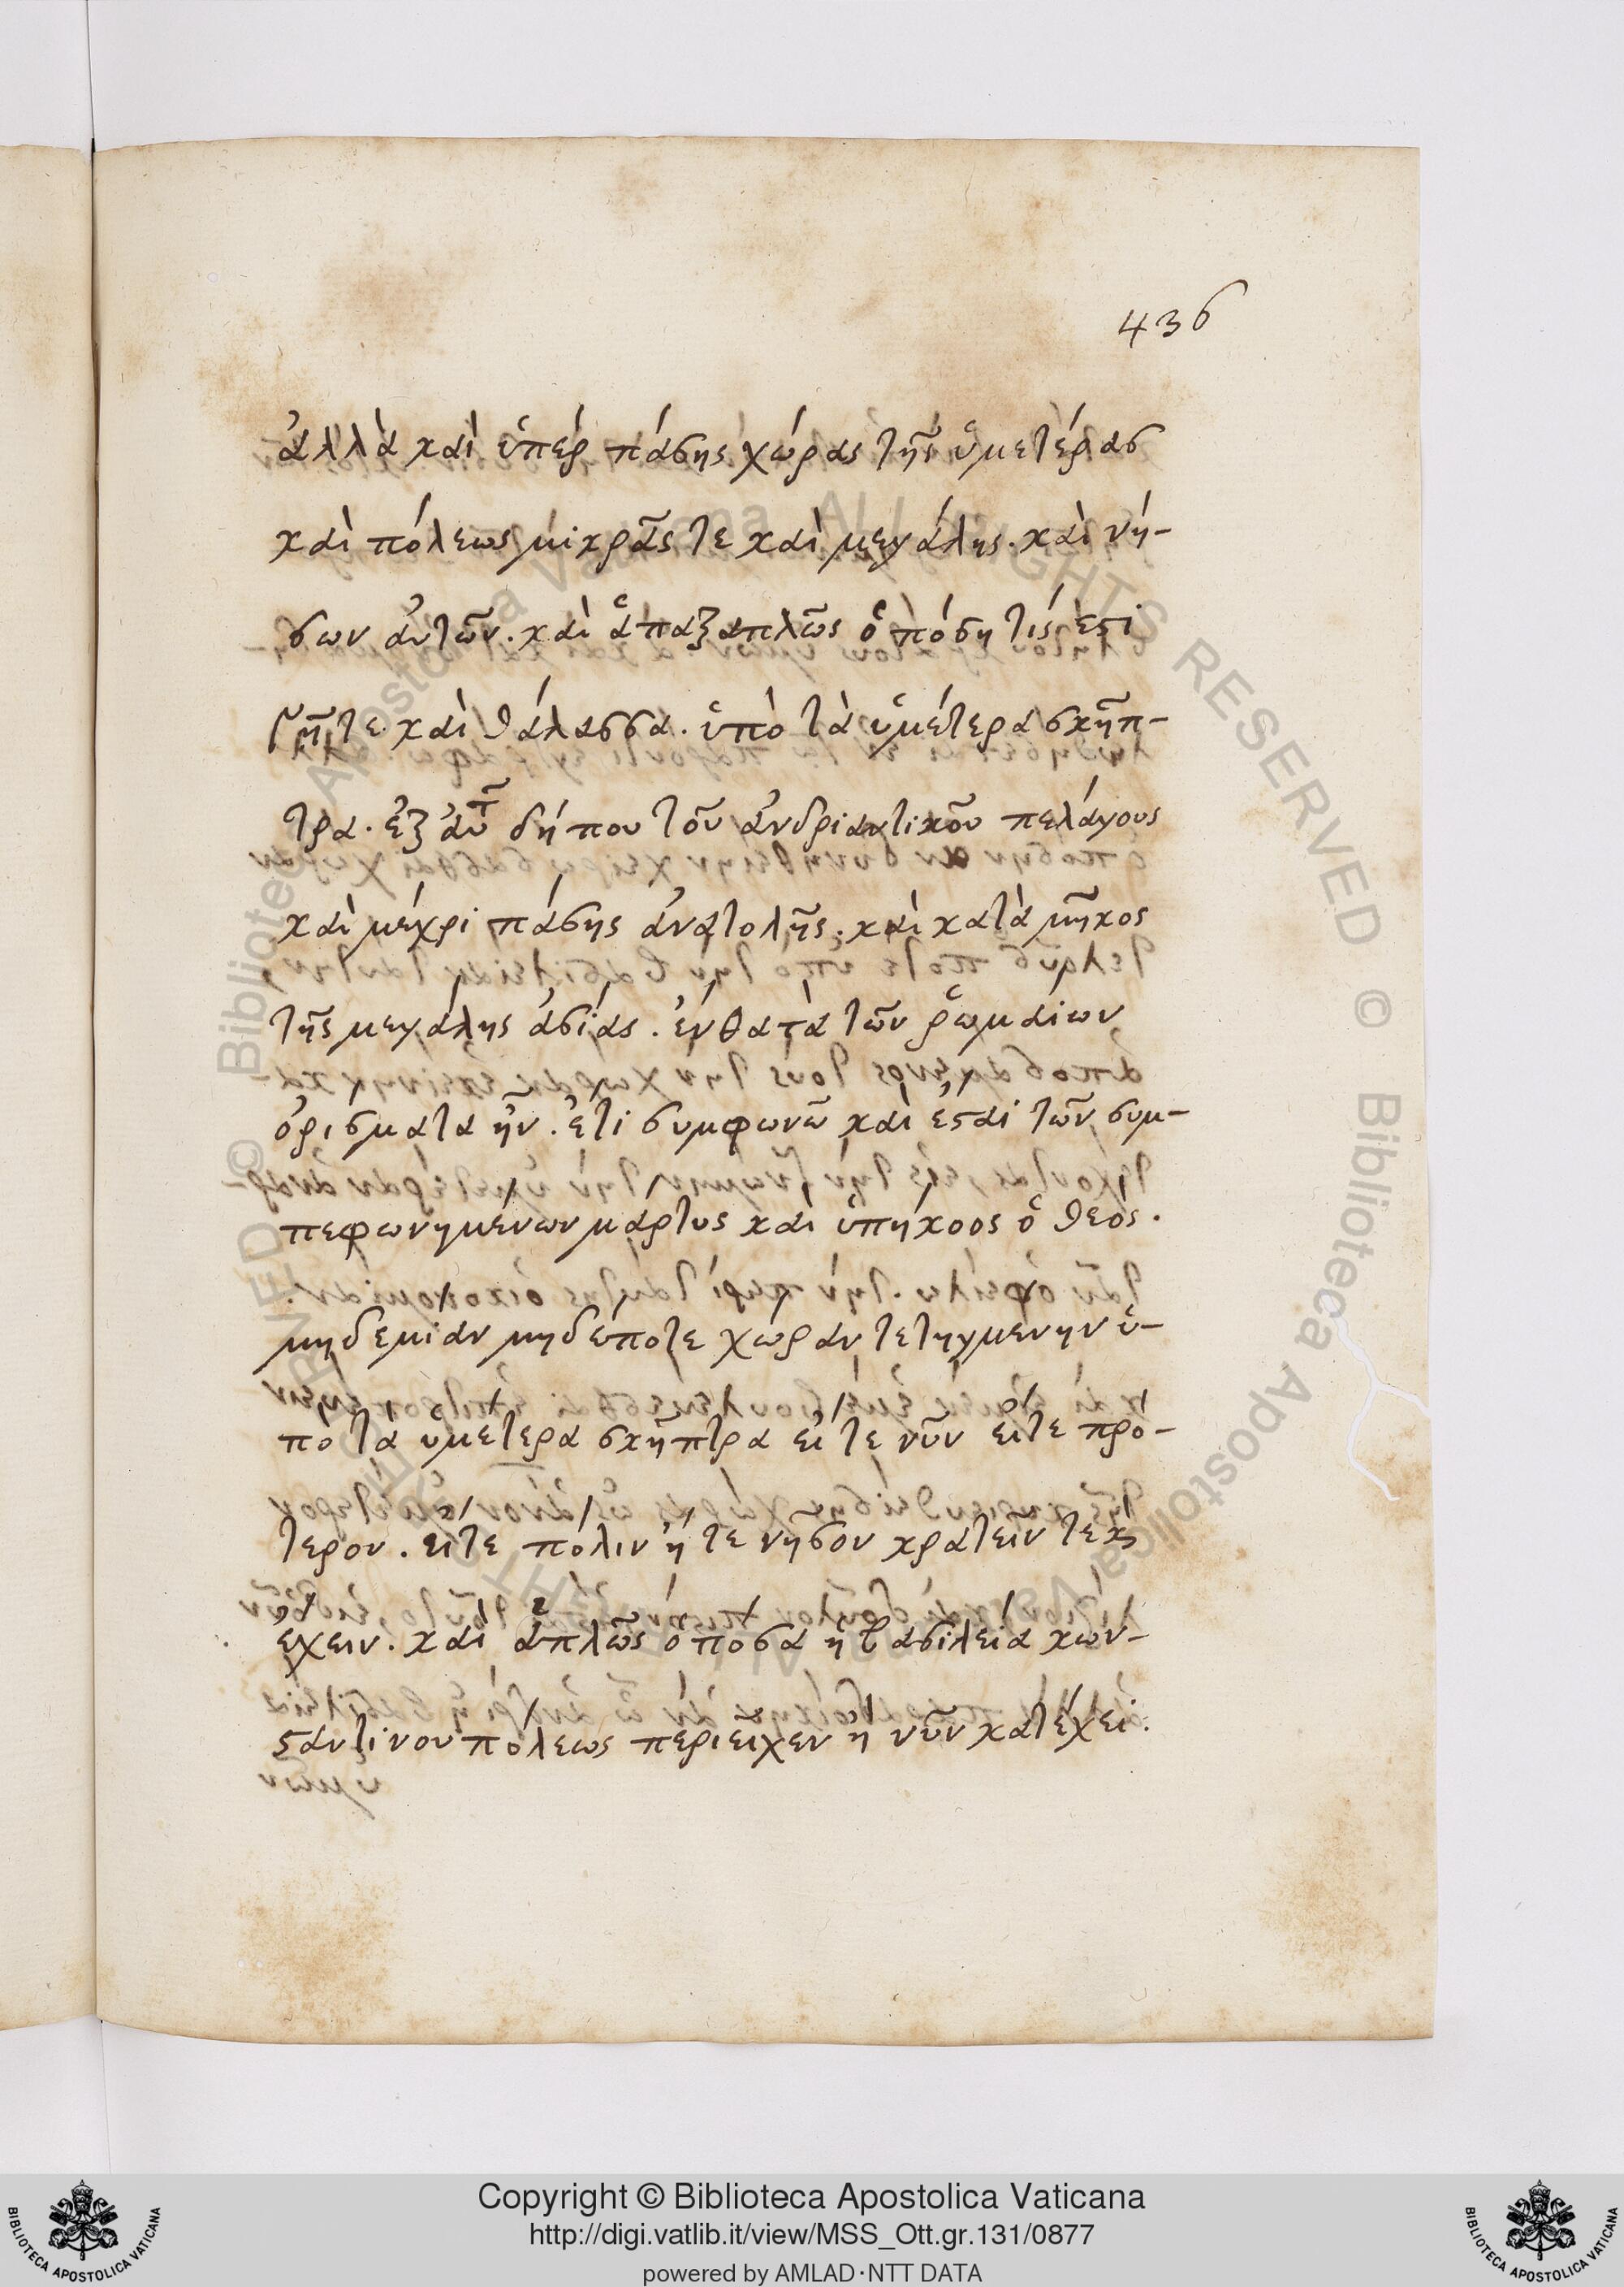 436
ἀλλὰ καὶ ὑπὲρ πάσης χώρας τῆς ὑμετέρας
καὶ πόλεως μικρᾶς τε καὶ μεγάλης. καὶ νή-
σων αὐτῶν. καὶ ἁπαξαπλῶς ὁπόση τίς ἐστι
γῆ τε καὶ θάλασσα. ὑπὸ τὰ ὑμέτερα σκῆπ-
τρα. ἐξ αὐτ δήπου τοῦ ἀνδριαντικοῦ πελάγους
καὶ μέχρι πάσης ἀνατολῆς. καὶ κατὰ μῆκος
τῆς μεγάλης ἀσίας. ἔνθα τὰ τῶν ῥωμαίων
ὁρίσματα ἦν. ἔτι συμφωνῶ καὶ ἔσται τῶν συμ-
πεφωνημένων μάρτυς καὶ ὑπήκοος ὁ θεός.
μηδεμίαν μηδέποτε χώραν τετηγμένην ὑ-
πὸ τὰ ὑμέτερα σκῆπτρα εἴτε νῦν εἴτε πρό-
τερον. εἴτε πόλιν ἤτε νῆσον κρατεῖν τε κ
ἔχειν. καὶ ἁπλῶς ὁπόσα ἡ βασιλεία κων-
σταντίνου πόλεως περιεῖχεν ἢ νῦν κατέχει.
Copyright © Biblioteca Apostolica Vaticana
http://digi.vatlib.it/view/MSS_Ott.gr.131/0877
powered by AMLAD·NTT DATA
BIBLIOTECA APOSTOLICA VATICANA
BIBLIOTECA APOSTOLICA VATICANA